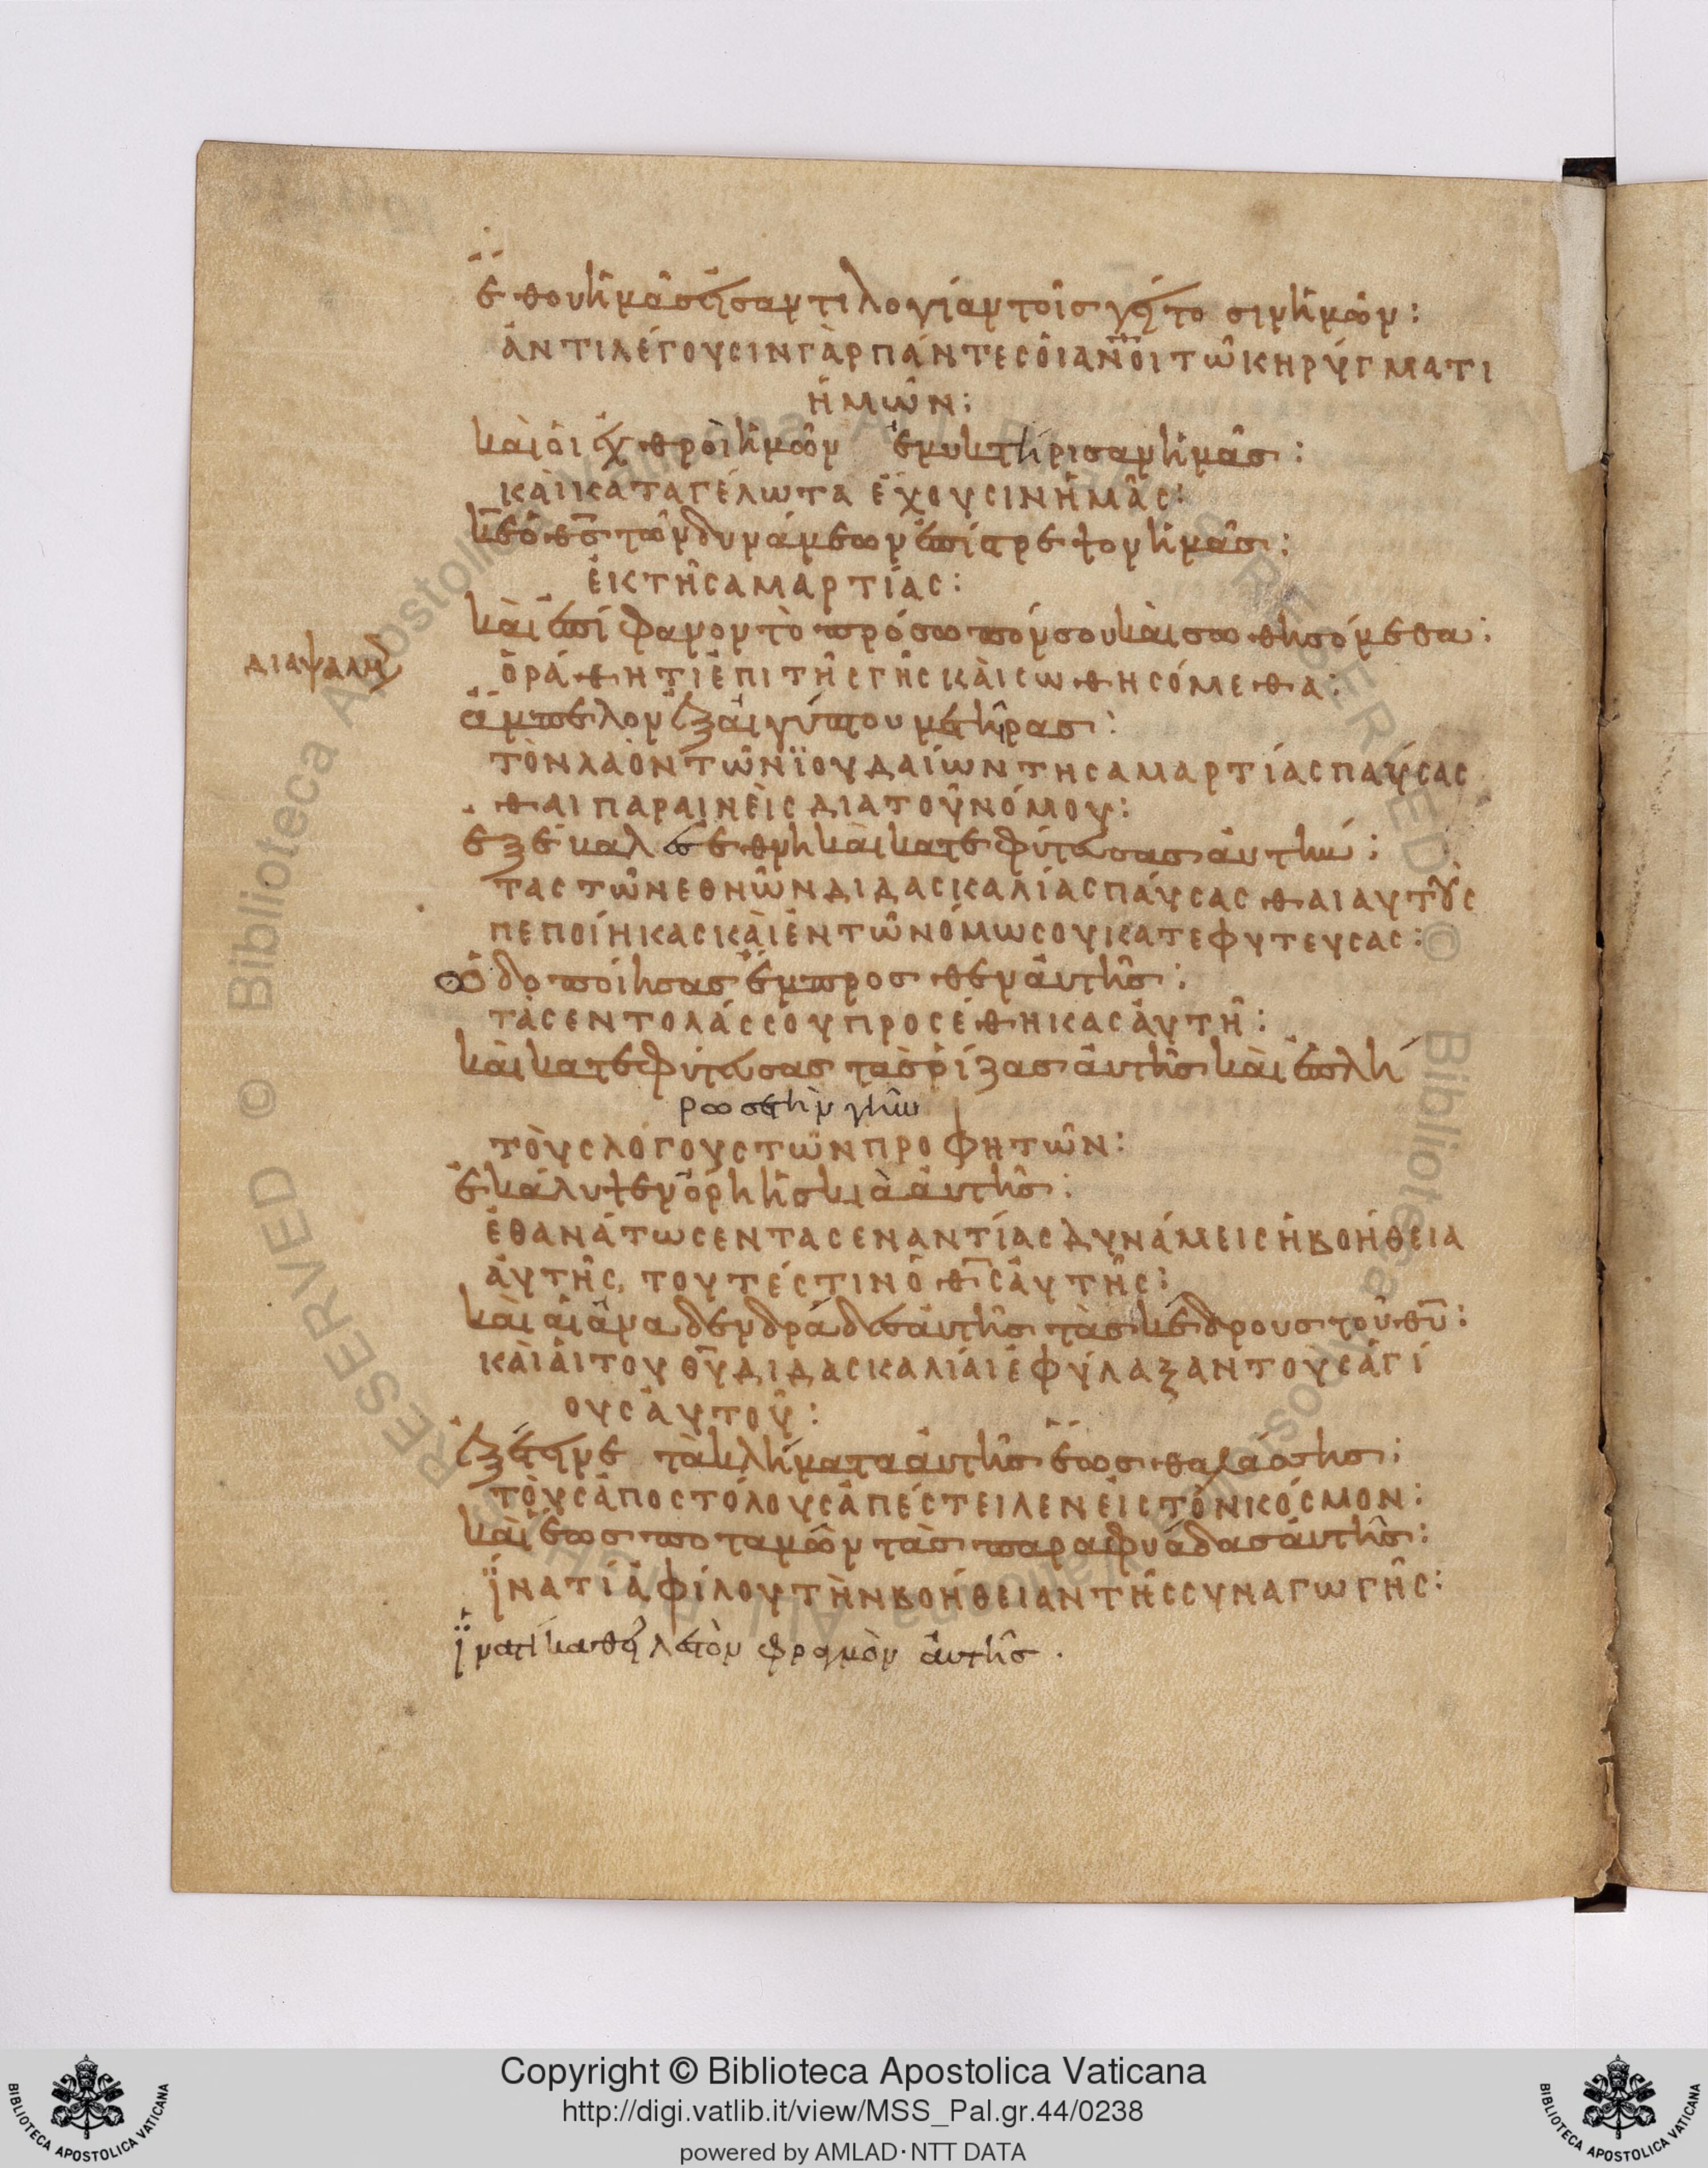 ἔθου ἡμᾶς εἰς ἀντιλογίαν τοῖς γείτοσιν ἡμῶν:
ἀντιλέγουσιν γὰρ πάντες ὁι ἀνοι τῶ κηρύγματι
ἡμῶν:
καὶ ὁι ἐχθροὶ ἡμῶν ἐμυκτήρισαν ἡμᾶς:
καὶ καταγέλωτα ἔχουσιν ἡμᾶς:
κε ὁ θς τῶν δυνάμεων ἐπίστρεψον ἡμᾶς:
ἐκ τῆς αμαρτίας:
καὶ ἐπίφανον τὸ πρόσωπόν σου καὶ σωθησόμεθα:
διαψαλμ
ὁράθητι ἐπι τῆς γῆς καὶ σωθησόμεθα:
ἄμπελον ἐξ αἰγύπτου μετῆρας:
τὸν λαὸν τῶν ϊουδαίων της αμαρτίας παύσας
θαι παραινεὶς δια τοῦ νόμου:
εξέβαλες έθνη καὶ κατεφύτευσας ἀυτήν:
τας τῶν εθνῶν διδασκαλίας παύσασθαι αυτοὺς
πεποίηκας καὶ ἐν τῶ νόμω σου κατεφυτευσας:
ὡδοποίησας ἔμπροσθεν ἀυτῆς:
τὰς εντολάς σου προσέθηκας ἀυτῆ:
καὶ κατεφύτευσας τὰς ῥίζας ἀυτῆς καὶ ἐπλή
ρωσε τὴν γῆν
τοὺς λόγους τῶν προφητῶν:
ἐκάλυψεν ὄρη ἡ σκιὰ ἀυτῆς:
ἐθανάτωσεν τας εναντίας δυνάμεις ἡ βοήθεια
ἀυτῆς, τουτέστιν ὁ θς ἀυτῆς:
καὶ αἱ ἀναδενδράδες ἀυτῆς τὰς κέδρους τοῦ θυ:
καὶ ἁι του θυ διδασκαλίαι ἐφύλαξαν τοὺς ἁγί
ους ἀυτοῦ:
ἐξέτεινε τὰ κλήματα ἀυτῆς ἕως θαλάσσης:
τοὺς ἀποστόλους ἀπέστειλεν ἐις τὸν κόσμον:
καὶ ἕως ποταμῶν τὰς παραφυάδας ἀυτῆς:
ϊνατί ἀφίλου τὴν βοήθειαν τῆς συναγωγῆς:
ϊνατί καθεῖλε τὸν φραγμὸν ἀυτῆς.
Copyright © Biblioteca Apostolica Vaticana
http://digi.vatlib.it/view/MSS_Pal.gr.44/0238
powered by AMLAD·NTT DATA